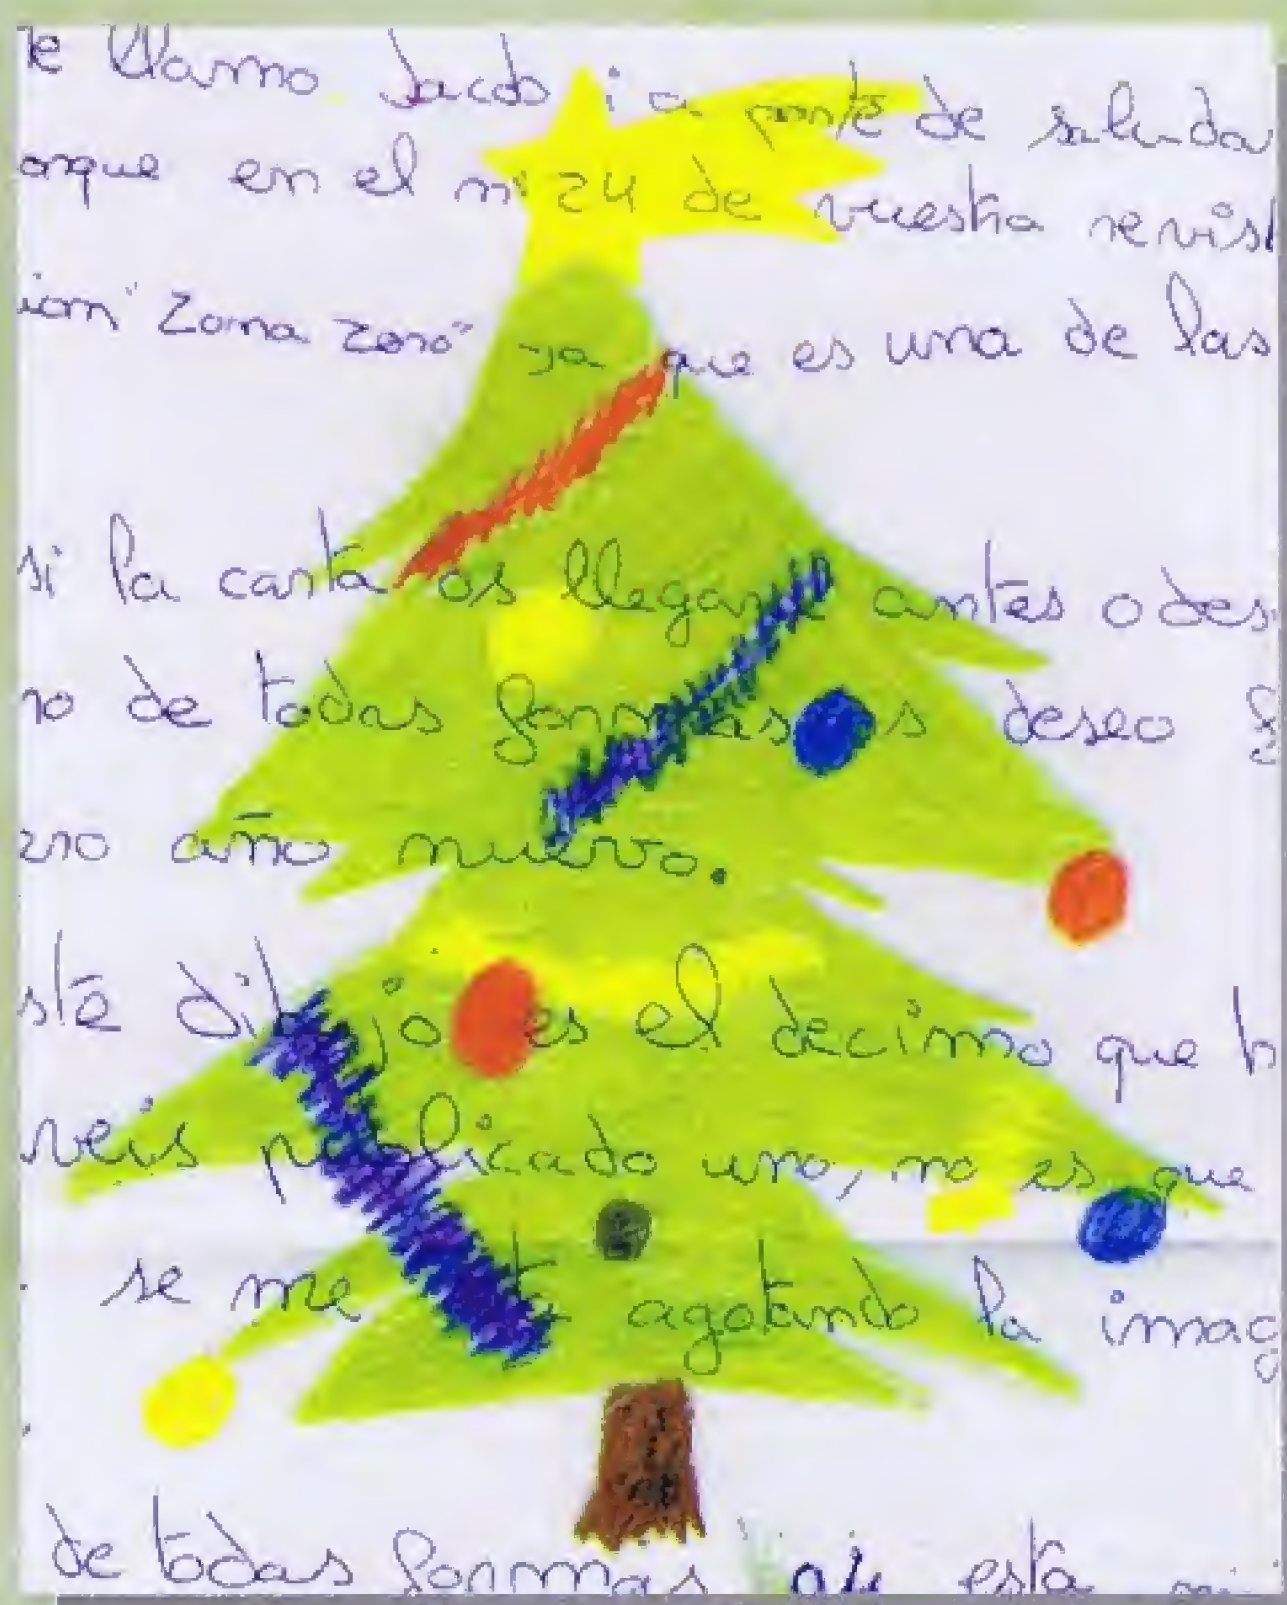 e llamo Jacob i a parte de saluda
orque en el nº 24 de vuestra revist
ion "Zona Zero" ya que es una de las
si la carta os llegara antes o des
ro de todas formas os deseo f
ero año nuevo.
ste dibujo es el decimo que h
veis publicado uno, no es que
se me está agotando la imag
de todas formas está